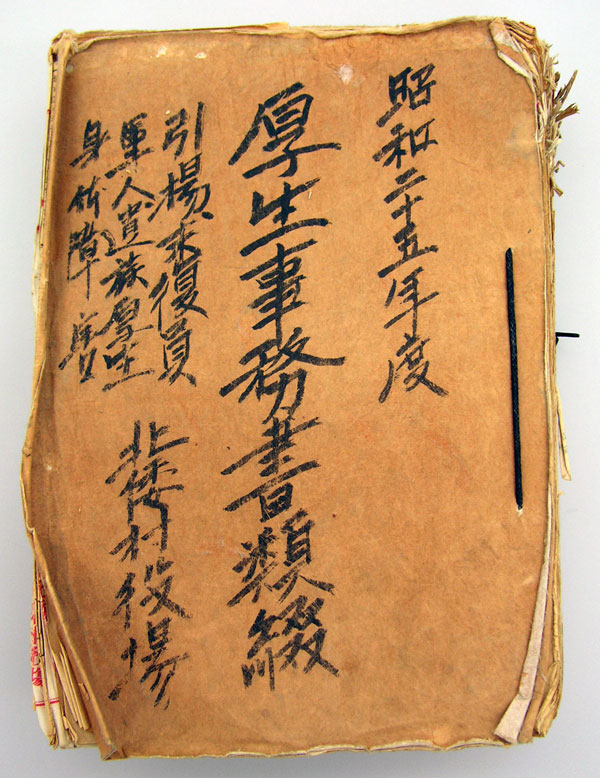 昭和二十五年度
厚生事務書類綴
引揚、未復員
軍人遺族厚生
身体障害
北倭村役場